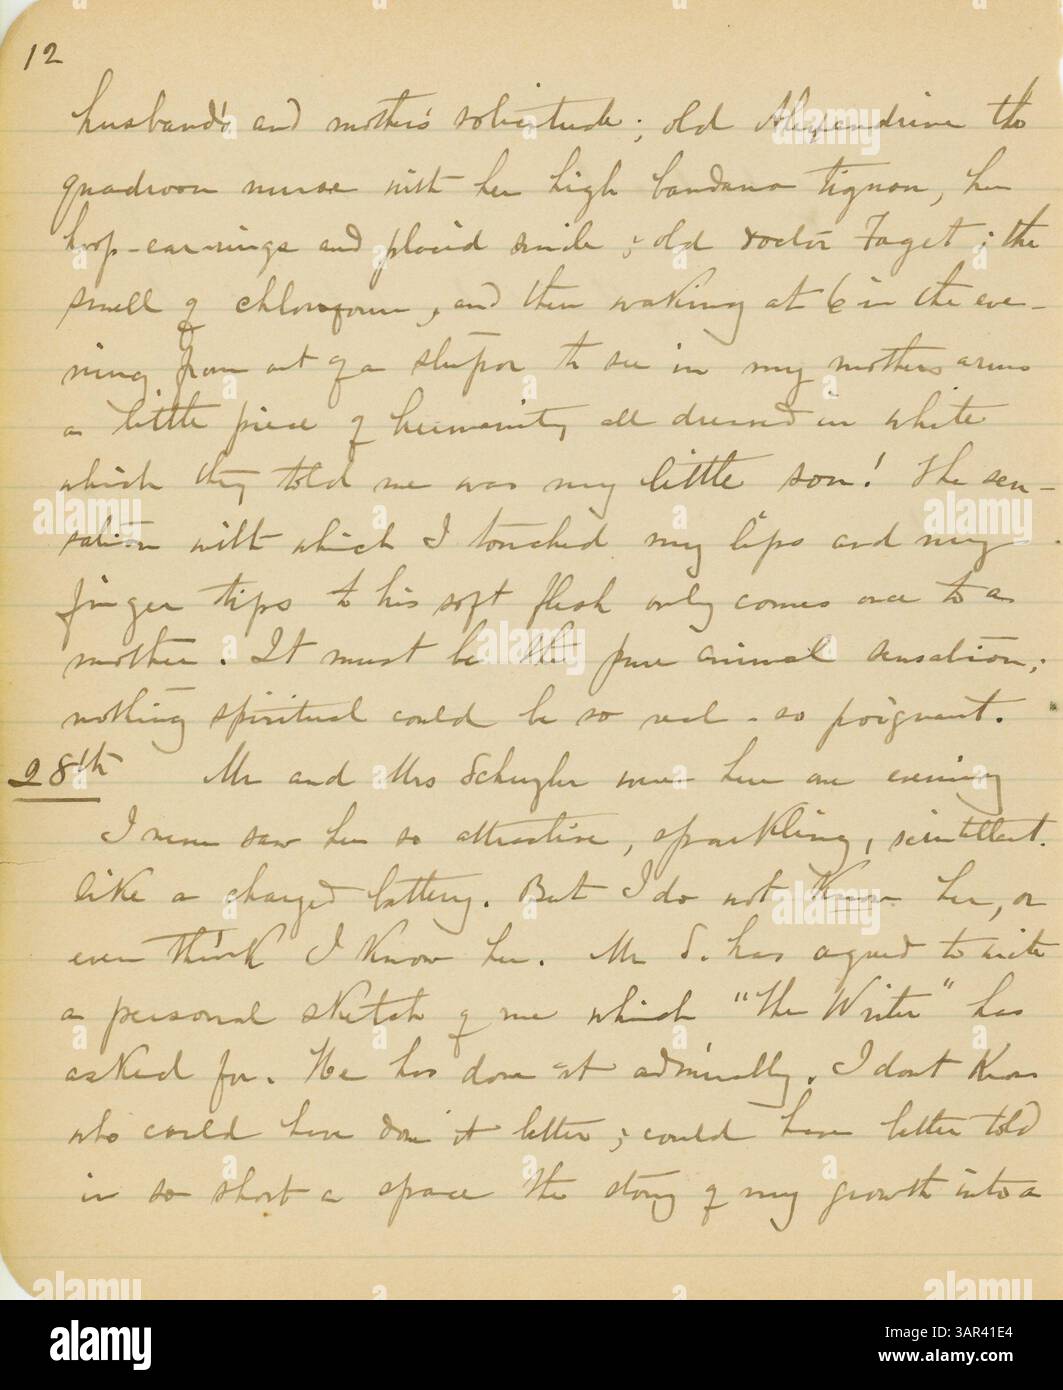 12
husband's and mother's solicitude; old Alexandrine the
quadroon nurse with her high bandana tignon, her
hoop-earrings and placid smile; old doctor Faget; the
smell of chloroform, and then waking at 6 in the eve-
ning from out of a stupor to see in my mothers arms
a little piece of humanity all dressed in white
which they told me was my little son! The sen-
sation with which I touched my lips and my
finger tips to his soft flesh only comes once to a
mother. It must be the pure animal sensation;
nothing spiritual could be so real - so poignant.
28th Mr and Mrs Schuyler were here one evening
I never saw her so attractive, sparkling, scintillant.
like a charged battery. But I do not know her, or
even think I know her. Mr S. has agreed to write
a personal sketch of me which "The Writer" has
asked for. He has done it admirably. I dont know
who could have done it better; could have better told
in so short a space the story of my growth into a
alamy
Image ID: 3AR41E4
www.alamy.com